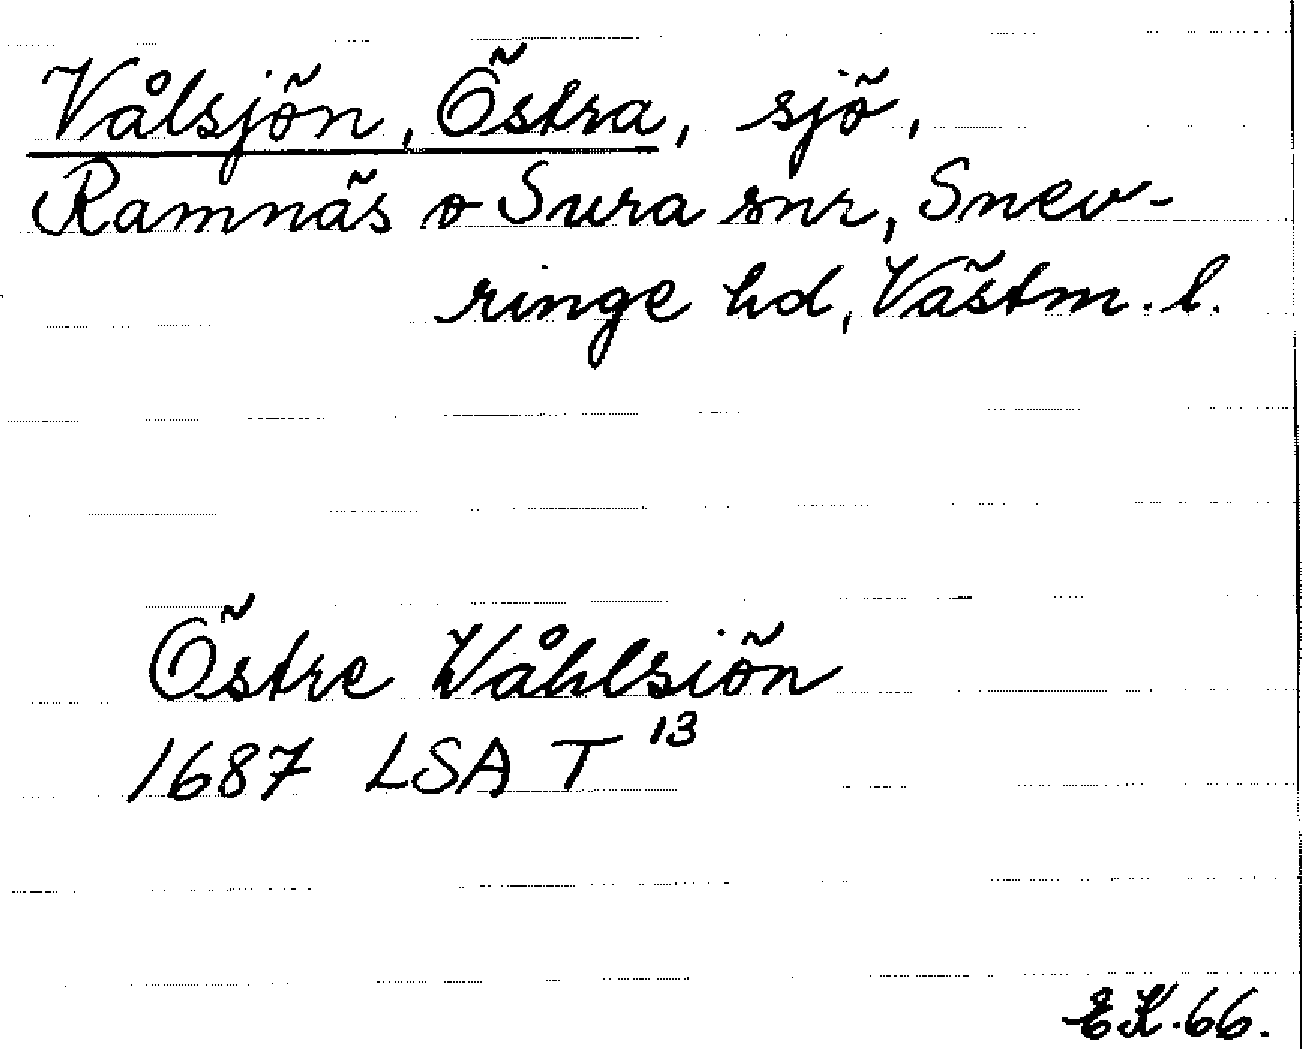 Vålsjön, Östra, sjö,
Ramnäs o Sura snr, Snev-
ringe hd, Västm. l.
Östre Wåhlsiön
1687 LSA T 13
EK. 66.